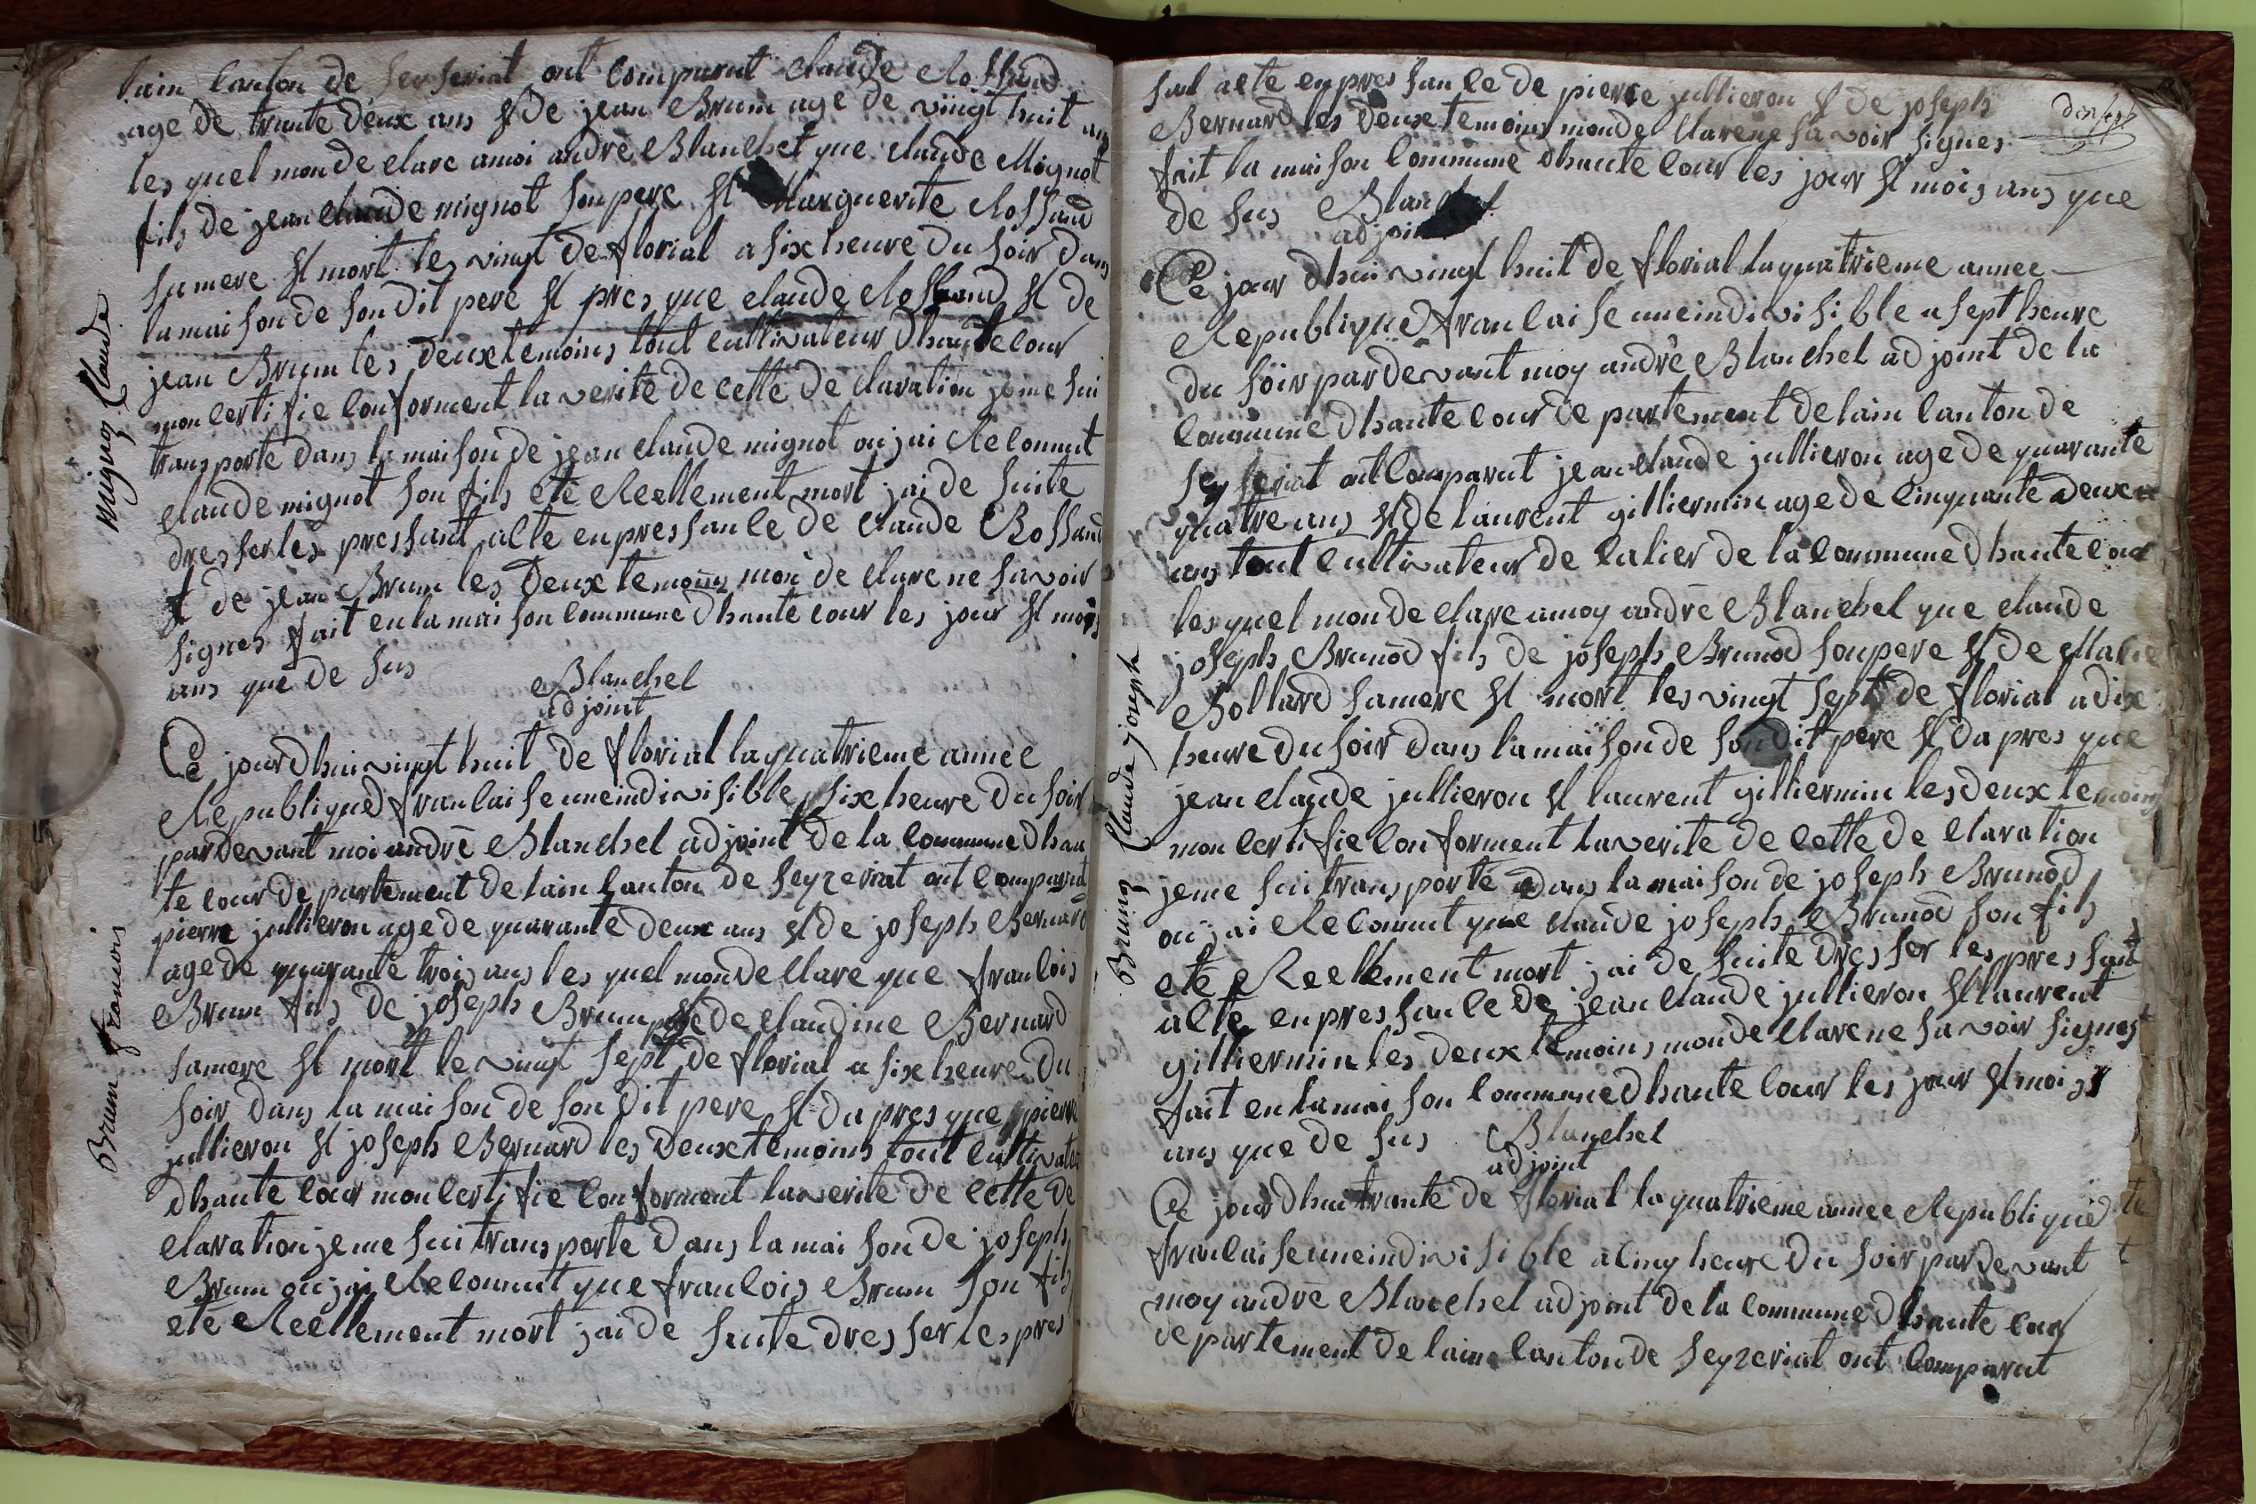 lain Canton de seyseriat ont Comparut Claude Rossand
age de trante deux ans et de jean Brum age de vingt huit ans
les quel mon de Clare a moi andré Blanchet que Claude Mignot
fils de jean Claude mignot son pere et Marguerite Rossand
sa mere et mort les vingt de florial a six heure du soir dans
la maison de son dit pere et pres que Claude Rossand et de
jean Brum les deux temoins tout Cultivateur dhaute Cour
mon Certifie Conforment la verite de cette de Claration je me sui
transporte dans la maison de jean Claude mignot ou jai Reconnut
Claude mignot son fils ete Reellement mort jai de suite
dresser les pressant acte en pressance de Claude Rossand
et de jean Brum les deux temoins mon de Clare ne savoir
signes fait en la maison Commune dhaute Cour les jour et mois
ans que de sus
Blanchet
adjoint
Mignoz Claude
Ce jourdhui vingt huit de florial la quatrieme année
Republique francaise une indivisible, six heure du soir
pardevant moi andré Blanchet adjoint de la Commune dhau
te Cour departement de lain Canton de seyzeriat ont Comparut
pierre jullieron age de quarante deux ans et de joseph Bernard
age de quarante trois ans les quel mon de Clare que francois
Brum fils de joseph Brum et de Claudine Bernard
sa mere et mort le vingt sept de florial a six heure du
soir dans la maison de son dit pere et da pres que pierre
jullieron et joseph Bernard les deux temoins tout Cultivateur
dhaute Cour mon Certifie Conforment la verite de cette de
Claration je me sui transporte dans la maison de joseph
Brum ou jai Reconnut que francois Brum son fils
ete Reellement mort jai de suite dresser les pres
Brum francois
sant acte en pressance de pierre jullieron et de joseph
Bernard les deux temoins mon de Clare ne savoir signes
fait la maison Commune dhaute Cour les jour et mois ans que
de sus Blanchet
adjoint
dix sept
Ce jour dhui vingt huit de florial la quatrieme annee
Republique francaise une indivisible a sept heure
du soir pardevant moy andré Blanchet adjoint de la
Commune dhaute Cour departement de lain Canton de
seyseriat ont Comparut jean Claude jullieron age de quarante
quatre ans et de laurent gilliermin age de Cinquante deux
ans tout Cultivateur de Calier de la Commune dhaute Cour
les quel mon de Clare a moy andré Blanchet que Claude
joseph Brunod fils de joseph Brunod son pere et de Marie
Bollard sa mere et mort les vingt sept de florial a dix
heure du soir dans la maison de son dit pere et da pres que
jean Claude jullieron et laurent gilliermin les deux temoins
mon Certifie Conforment la verite de cette de Claration
je me sui transporté dans la maison de joseph Brunod
ou jai Reconnut que Claude joseph Brunod son fils
eté Reellement mort jai de suite dresser les pressant
acte en pressance de jean Claude jullieron et laurent
gilliermin les deux temoins mon de Clare ne savoir signes
fait en la maison Commune dhaute Cour les jour et mois
ans que de sus Blanchet
adjoint
Brunoz Claude joseph
Ce jourdhui trante de florial la quatrieme annee Republique
francaise une indivisible a Cinq heure du soir pardevant
moy andré Blanchet adjoint de la Commune dhaute Cour
departement de lain Canton de seyzeriat ont Comparut